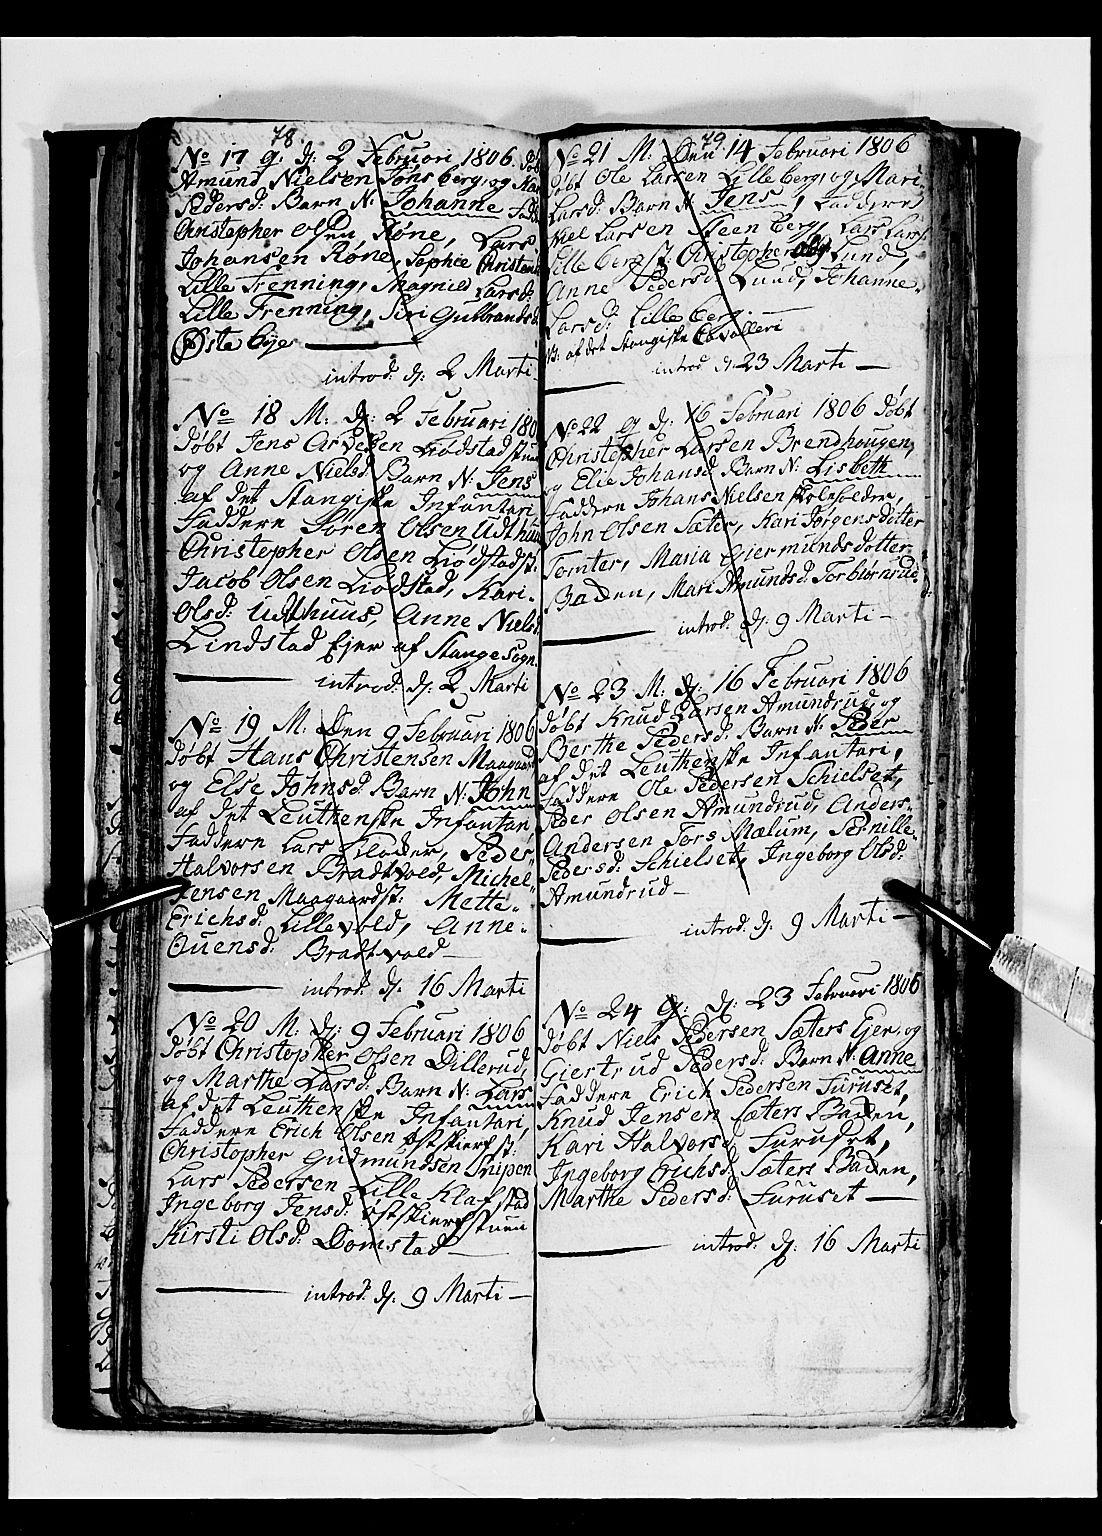 78
No 17 g. dj: 2 Februari 1806. døb
Amund Nielsen Tønsberg, og Mar
Pedersd: Barn N: Johanne Fadd
Christopher Olsen Røne, Lars
Johansen Røne, Sophie Christens
Lille Frenning, Magnild Larsd:
Lille Frenning, Siri Gulbrandsd
Østebye
introd: dj: 2 Marti
No 18 M: dj: 2 Februari 180
døbt Jens Arvesen Liødstadstue
og Anne Nielsd Barn N: Jens
af det Stangiske Infantari
Faddere Søren Olsen Udthuu
Christopher Olsen Liødstadst:
Jacob Olsen Liødstad, Kari
Olsd: Udthuus, Anne Nielsd
Lindstad Ejer af Stange Sogn.
introd: dj: 2 Marti
No 19 M: Den 9 Februari 1806
døbt Hans Christensen Maagaard
og Else Johnsd: Barn N: John
af det Leuthenske Infantari
Faddere Lars Kloder, Peder
Halvorsen Bradtvold, Michel
Jensen Maagaardst: Mette
Erichsd: Lillevold, Anne
Ouensd: Bradtvold
introd: dj: 16 Marti
No 20 M: dj: 9 Februari 1806
døbt Christopher Olsen Dillerud,
og Marthe Larsd: Barn N: Lars
af det Leuthenske Infantari,
Faddere Erich Olsen Østskierst:
Christopher Gudmundsen Snipen
Lars Pedersen Lille Klafstad
Ingeborg Jensd: Østskierstuen
Kirsti Olsd: Domstad
introd: dj: 9 Marti
79
No 21 M: Den 14 Februari 1806
døbt Ole Larsen Lilleberg, og Mari
Larsd: Barn N: Jens, Faddere
Niel Larsen Steenberg, Lars Lars:
Lillebergst: Christopher Lund,
Anne Pedersd: Lund, Johanne
Larsd: Lilleberg.
B: af det Stangiske Cavalleri
introd dj: 23 Marti
No 22 g dj: 16 Februari 1806 døbt
Christopher Larsen Brendhougen,
og Elie Johansd: Barn N: Lisbeth
Faddere Johans Nielsen skoleholder,
John Olsen Sæter, Kari Jørgensdotter
Tomter, Maria Giermundsdotter
Baden, Mari Amundsd: Torbiørnrud
introd: dj: 9 Marti
No 23 M: dj: 16 Februari 1806
døbt Knud Larsen Amundrud, og
Berthe Pedersd: Barn N: Peder
af det Leuthenske Infantari,
Faddere Ole Pedersen Schielset,
Peder Olsen Amundrud, Anders
Andersen Tors Mælum, Pernille
Pedersd: Schielset, Ingeborg Olsd:
Amundrud
introd: dj: 9 Marti
No 24 g: dj: 23 Februari 1806
døbt Niels Pedersen Sæters Ejer, og
Giertrud Pedersd: Barn N: Anne
Faddere Erich Pedersen Furuset,
Knud Jensen Sæters Baden,
Kari Halvorsd: Furuset,
Ingeborg Erichsd: Sæters Baden,
Marthe Pedersd: Furuset
introd: dj: 16 Marti